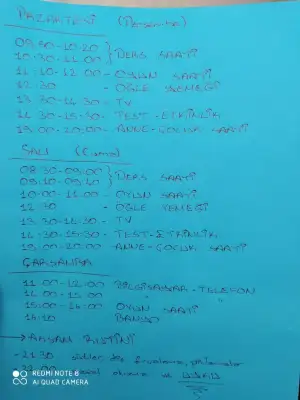 PAZARTESİ (Perşembe)
09:30-10:20 } DERS SAATİ
10:30-11:00
11:10-12:00 - OYUN SAATİ
12:30 - ÖĞLE YEMEĞİ
13:30-14:30 - TV
14:30-15:30 - TEST-ETKİNLİK
19:00-20:00 - ANNE-ÇOCUK SAATİ
SALI (Cuma)
08:30-09:00 } DERS SAATİ
09:10-09:40
10:00-11:00 - OYUN SAATİ
12:30 - ÖĞLE YEMEĞİ
13:30-14:30 - TV
14:30-15:30 - TEST-ETKİNLİK
19:00-20:00 - ANNE-ÇOCUK SAATİ
ÇARŞAMBA
11:00-12:00 BİLGİSAYAR-TELEFON
14:00-15:00 " "
15:00-16:00 OYUN SAATİ
BANYO
→ AKŞAM RUTİNİ
- 21:30
- 22:00
REDMI NOTE 8
AI QUAD CAMERA